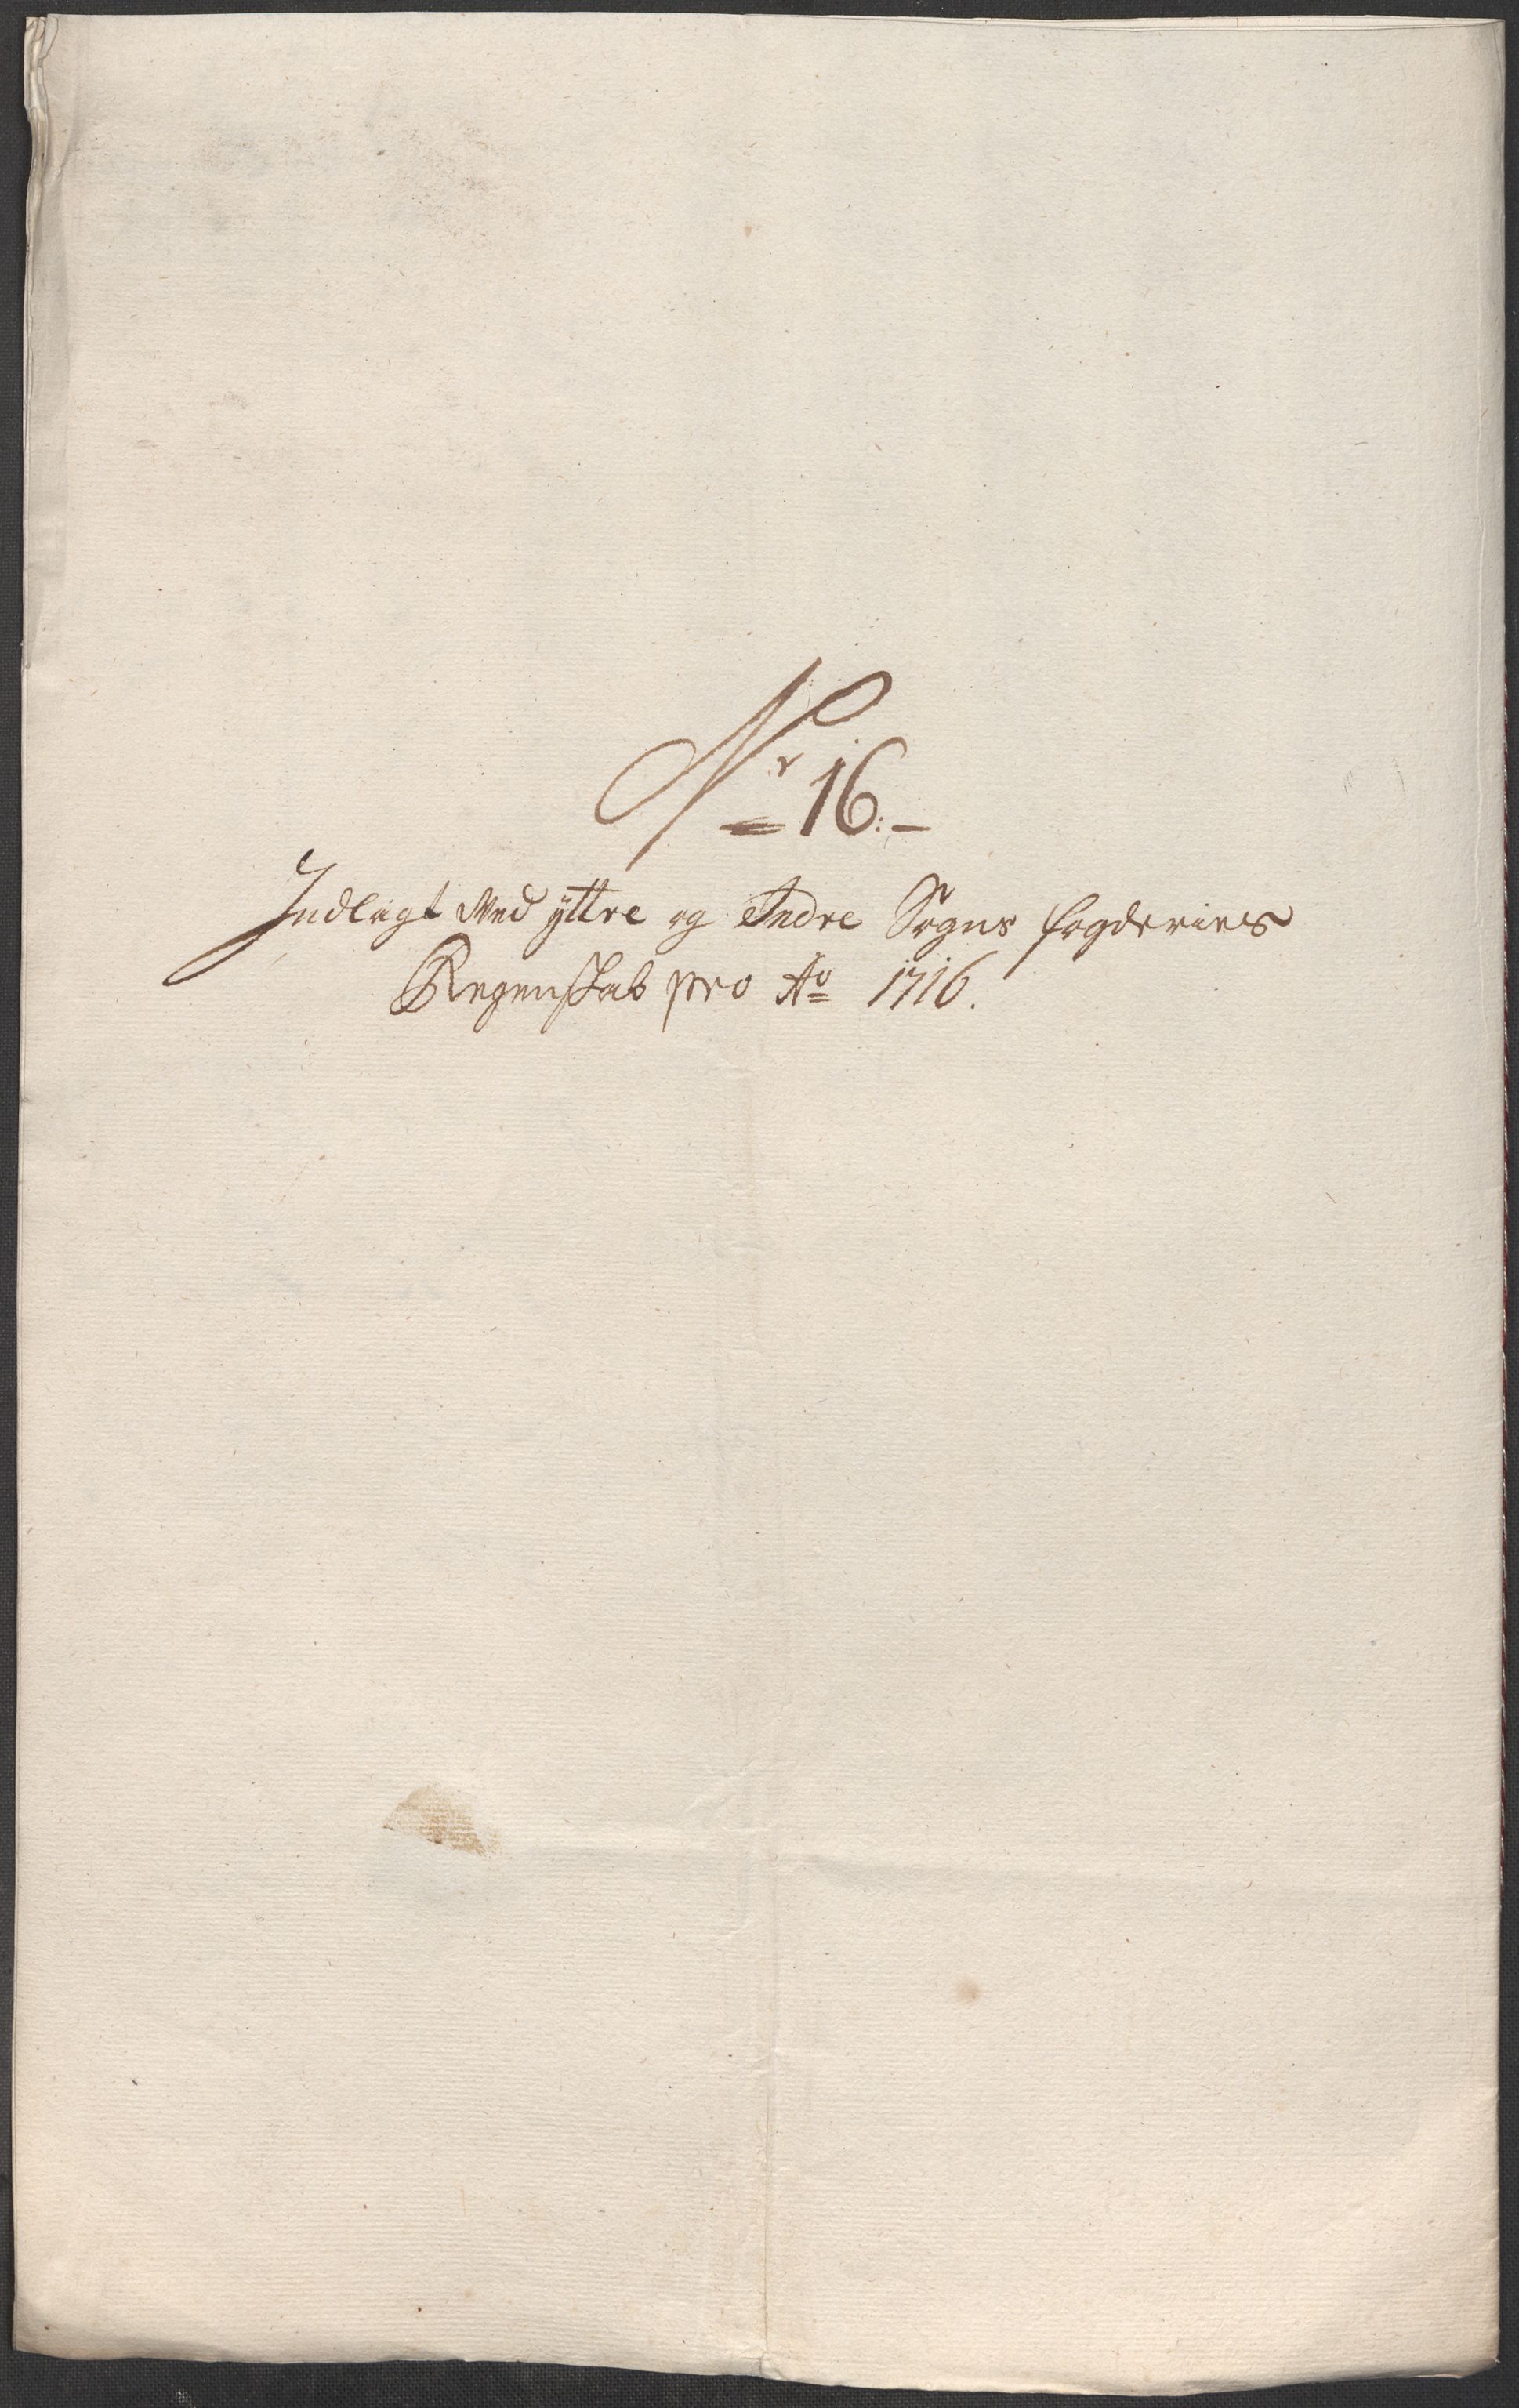 Nr 16.-
Indlagt Med ÿttre og Indre Sogns fogderies
Regenskab pro Ao 1716.